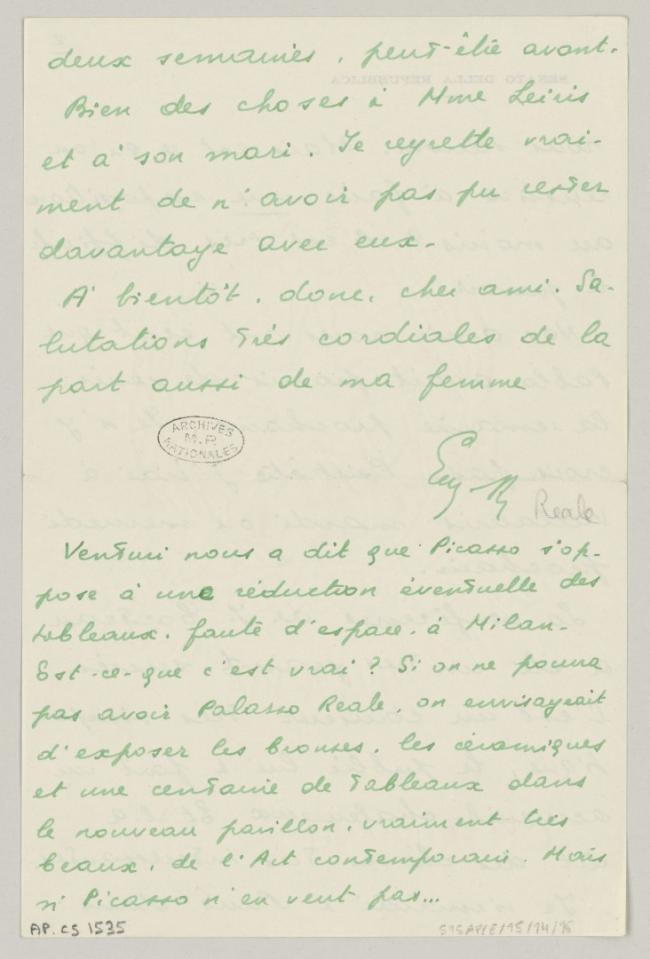 deux semaines, peut-être avant.
Bien des choses à Mme Leiris
et à son mari. Je regrette vrai-
ment de n'avoir pas pu rester
davantage avec eux.
A' bientôt, donc, cher ami. Sa-
lutations très cordiales de la
part aussi de ma femme
ARCHIVES
M.P.
NATIONALES
Reale
Venturi nous a dit que Picasso s'op-
pose à une réduction éventuelle des
tableaux, faute d'espace, à Milan-
Est-ce-que c'est vrai? Si on ne pourra
pas avoir Palasso Reale, on envisageait
d'exposer les bronses, les céramiques
et une centaine de tableaux dans
le nouveau pavillon, vraiment très
beaux, de l'Art contemporain. Mais
si Picasso n'en veut pas...
AP. CS 1535